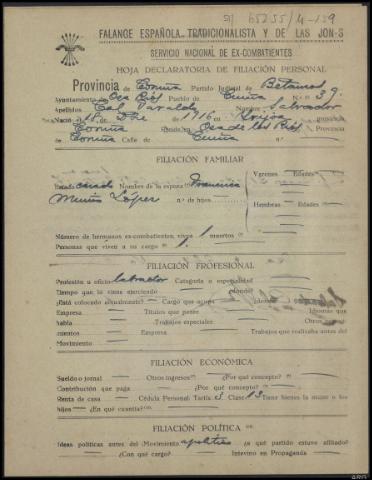 65255/4-139
FALANGE ESPAÑOLA TRADICIONALISTA Y DE LAS JON-S
SERVICIO NACIONAL DE EX-COMBATIENTES
HOJA DECLARATORIA DE FILIACIÓN PERSONAL
Provincia de Coruña Partido Judicial de Betanzos
Ayuntamiento de Oza Ríos Pueblo de N.º 39.
Apellidos Varela Nombre Salvador
Nació 18 Dbre de 1916 en
Coruña Reside en Oza de los Ríos Provincia
Coruña Calle de n.º
FILIACIÓN FAMILIAR
Varones Edades
Estado casado Nombre de la esposa Francisca
López n.º de hijos
Hembras Edades
Número de hermanos ex-combatientes, vivos 1 muertos
Personas que viven a su cargo 1.
FILIACIÓN PROFESIONAL
Profesión u oficio labrador Categoría o especialidad
Tiempo que la viene ejerciendo
¿Está colocado actualmente? Cargo que ocupa Idiomas
Empresa Títulos que posee Idiomas que
habla Trabajos especiales Otros
cuentos Empresa Trabajos que realizaba antes del
Movimiento
FILIACIÓN ECONÓMICA
Sueldo o jornal Otros ingresos ¿Por qué concepto?
Contribución que paga ¿Por qué concepto?
Renta de casa Cédula Personal Tarifa 3 Clase 13 Tiene bienes la mujer o los
hijos ¿En qué cuantía?
FILIACIÓN POLÍTICA
Ideas políticas antes del Movimiento apolítico ¿a qué partido estuvo afiliado?
¿Con qué cargo? Intervino en Propaganda